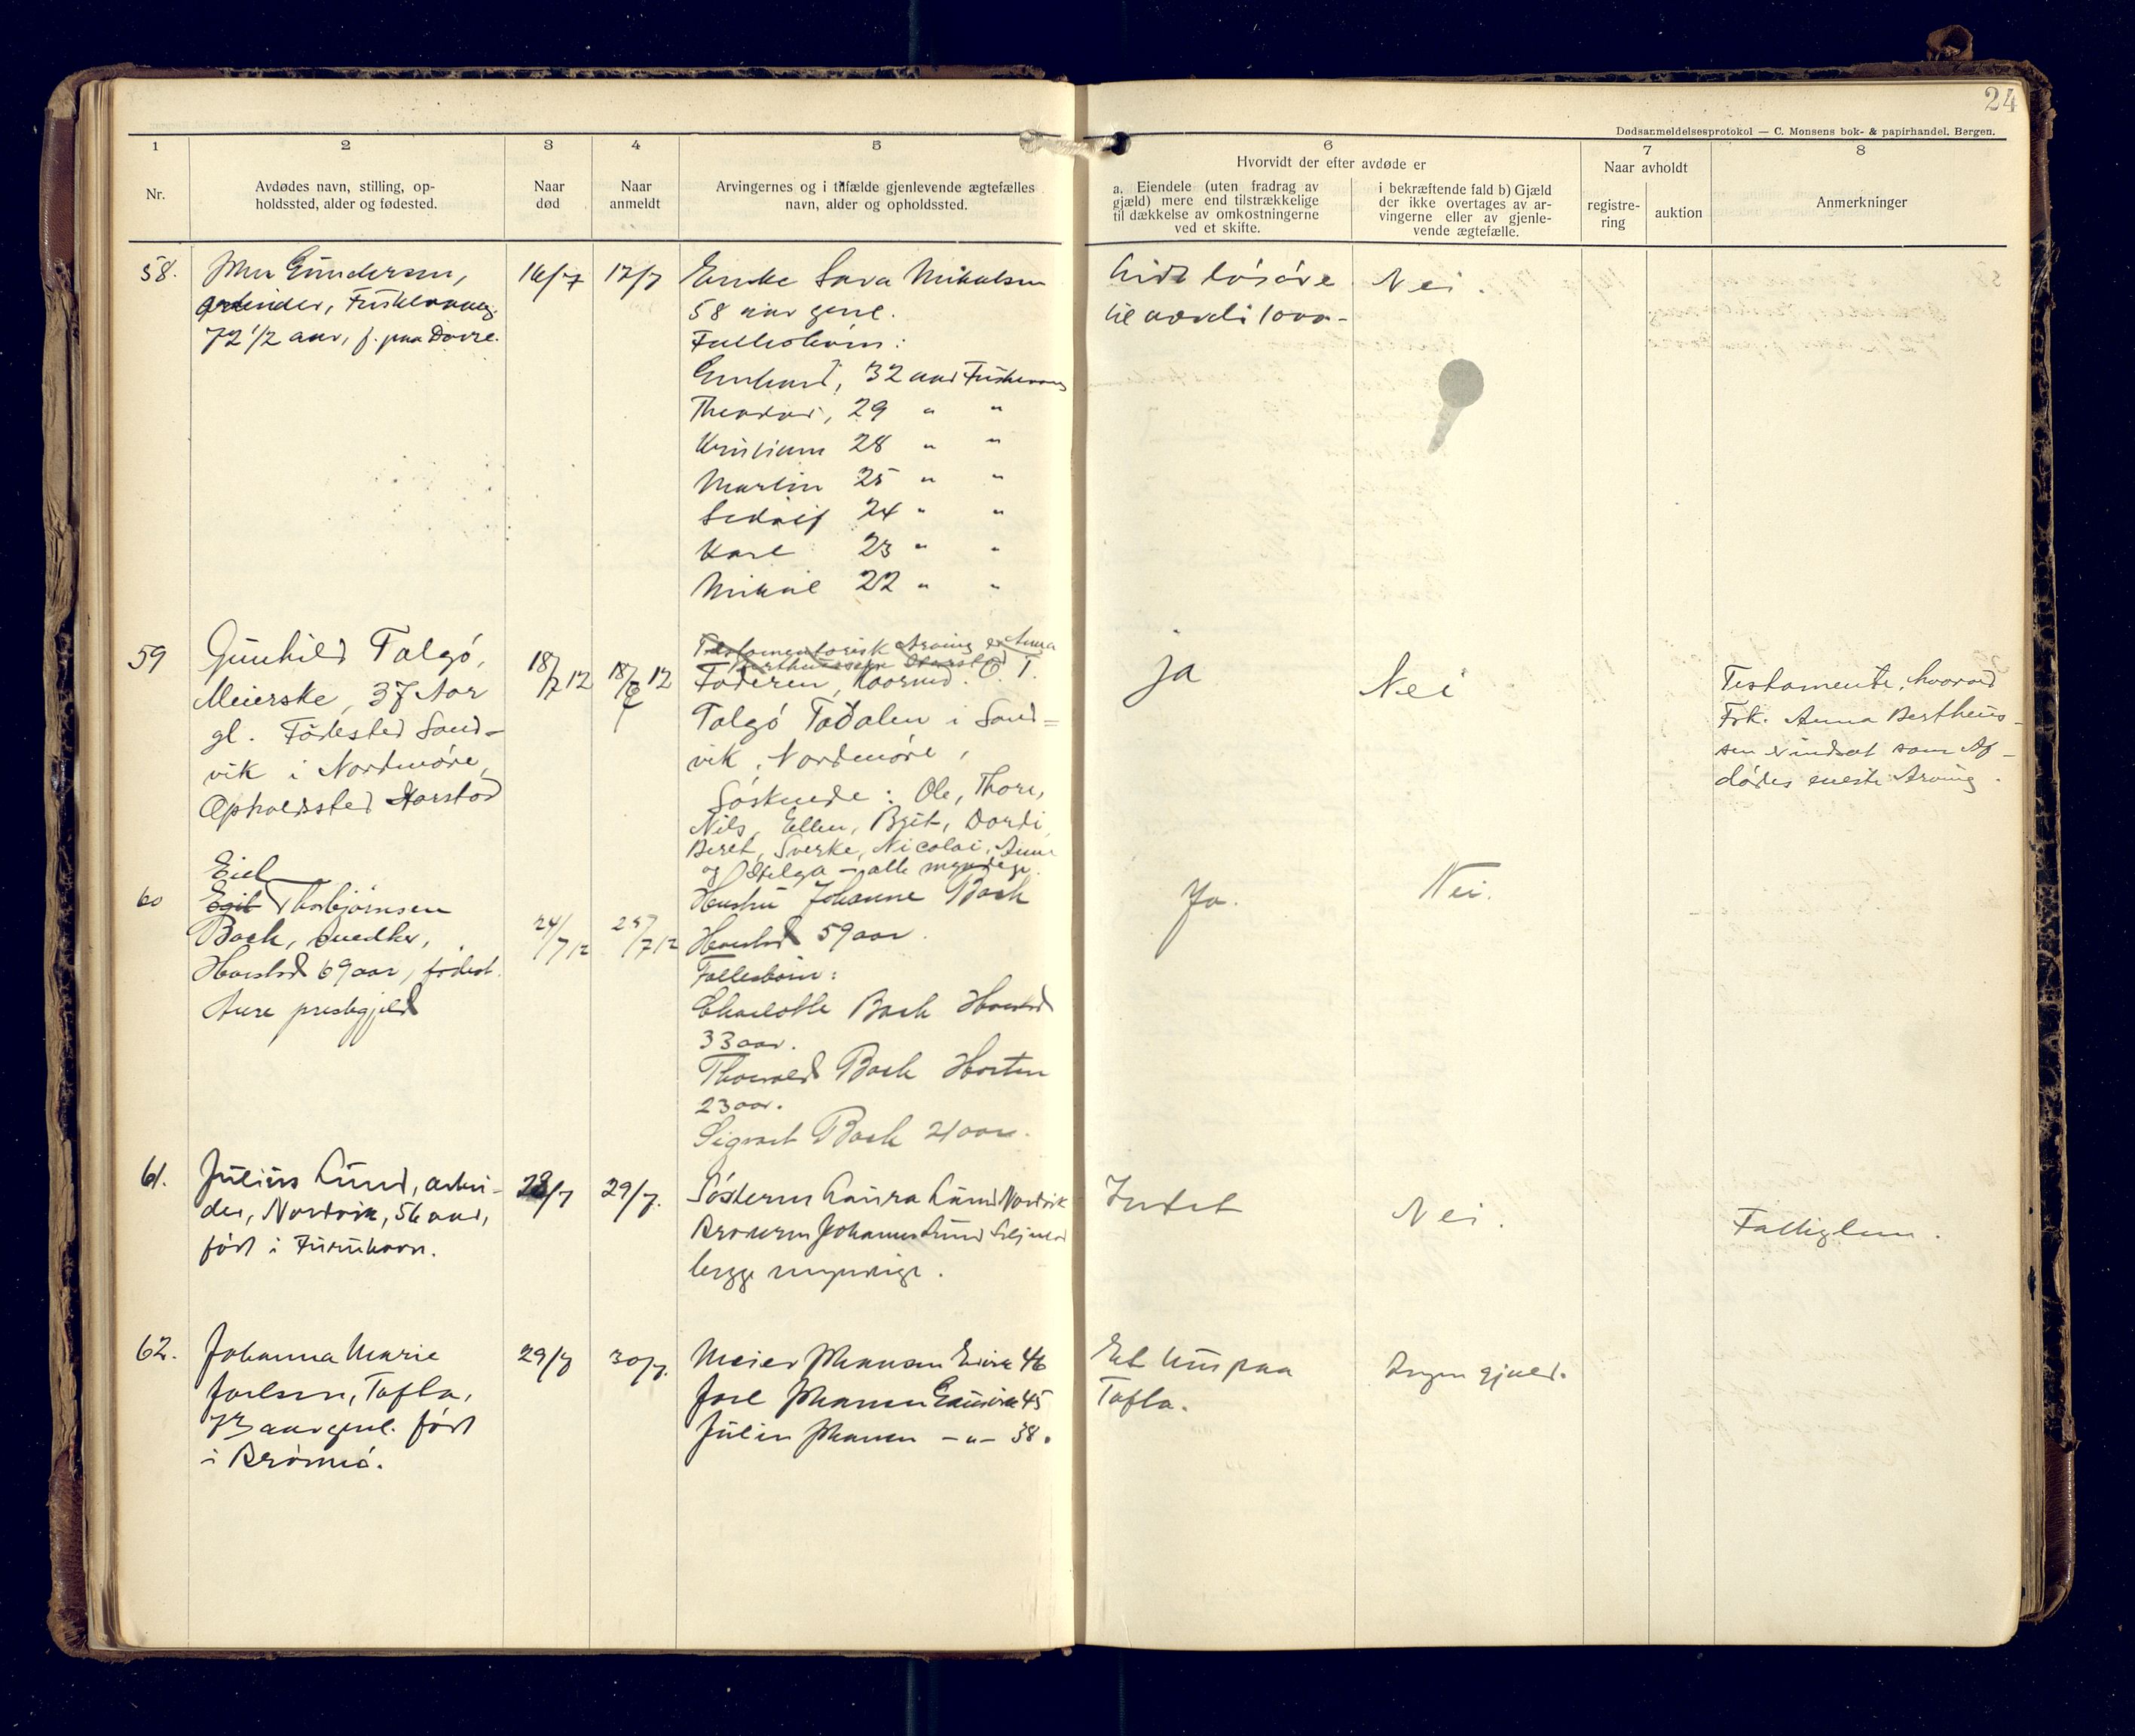 24
Dødsanmeldelsesprotokol — C. Monsens bok- & papirhandel, Bergen.
1
2
3
4
5
6
7
8
Nr.
Avdødes navn, stilling, op-
holdssted, alder og fødested.
Naar
død
Naar
anmeldt
Arvingernes og i tilfælde gjenlevende ægtefælles
navn, alder og opholdssted.
Hvorvidt der efter avdøde er
a. Eiendele (uten fradrag av
gjæld) mere end tilstrækkelige
til dækkelse av omkostningerne
ved et skifte.
i bekræftende fald b) Gjæld
der ikke overtages av ar-
vingerne eller av gjenle-
vende ægtefælle.
Naar avholdt
registre-
ring
auktion
Anmerkninger
58.
Gundersen,
arbeider,
72 1/2 aar, f. paa Dovre.
16/7
17/7
Enke Sara Mikalsen
58 aar gml.
Fællesbørn:
32 aar
Theodor, 29 " "
Kristian 28 " "
Martin 25 " "
24 " "
Karl 23 " "
Mikal 22 " "
Lidt løsøre
til værdi 1000-
Nei.
59
Gunhild Talgø,
Meierske, 37 Aar
gl. Fødested Sand-
vik i Nordmøre,
Opholdssted Harstad
18/7 12
18/7 12
Testamentarisk Arving er Anna
Bertheussen Harstad
Faderen, O. T.
Talgø Todalen i Sand-
vik, Nordmøre,
Søskende: Ole, Thore,
Nils, Ellen, Brit, Dordi,
Beret, Sverke, Nicolai, Anne
og Helga - alle myndige.
ja
Nei
Testamente, hvorved
Frk. Anna Bertheus-
sen er indsat som Af-
dødes eneste Arving.
60
Eiel
Egil Thorbjørnsen
Bach, snedker,
Harstad 69 aar, fødest.
Aure prestegjeld
24/7 12
25/7 12
Hustru Johanne Bach
Harstad 59 aar.
Fællesbørn:
Charlotte Bach Harstad
33 aar.
Thorvald Bach Horten
23 aar.
Sigvart Bach 21 aar.
Ja.
Nei.
61.
Julius Lund, arbei-
der, Nordvik, 56 aar,
født i
28/7
29/7.
Søsteren Laura Lund Nordvik
Broderen Johannes Lund
begge myndige.
Intet
Nei.
Fattiglem.
62.
Johanna Marie
Joelsen, Tofta,
73 aar gml. født
i
29/7
30/7.
Meier Johansen 46
Joel Johansen 45
Julin Johansen -"- 38.
Et hus paa
Tofta.
Ingen gjæld.